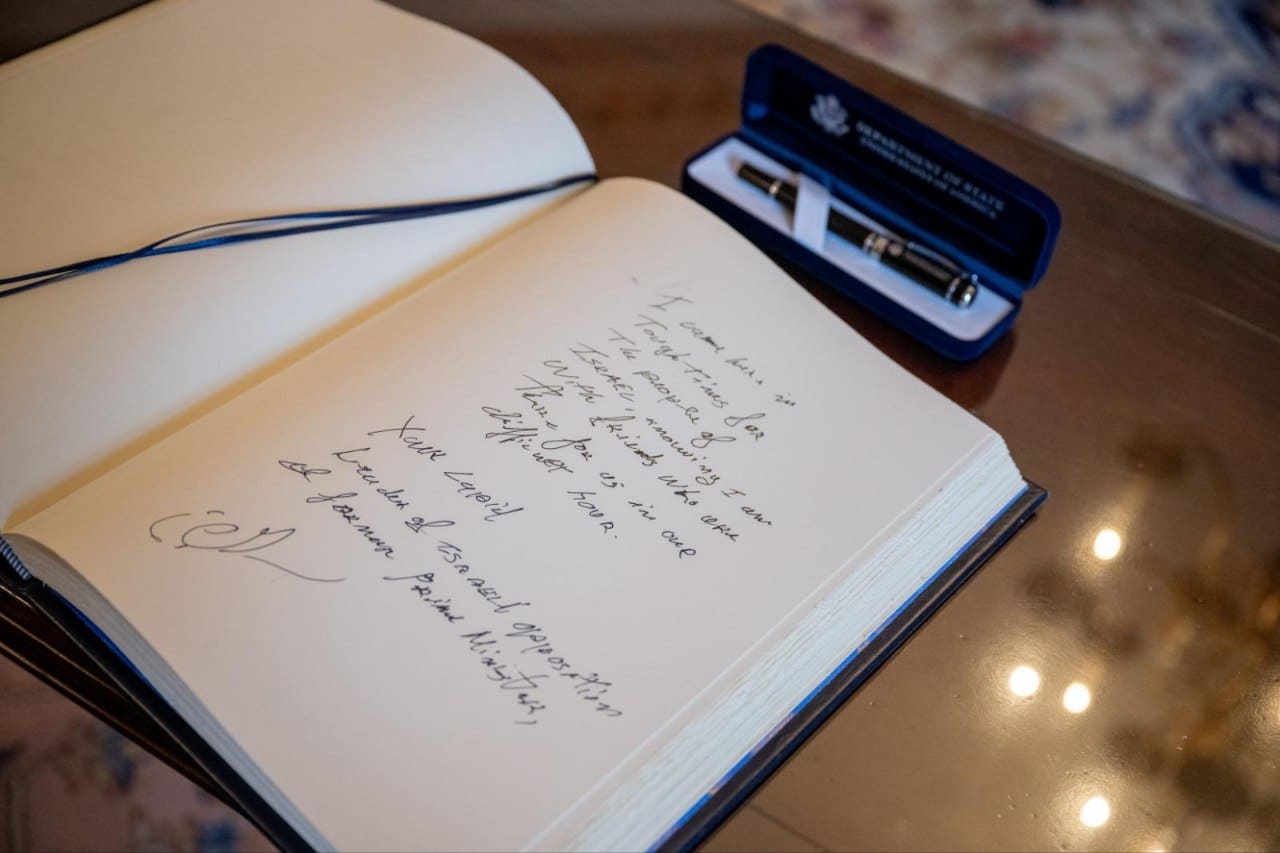 I came here in
Tough Times for
The people of
ISRAEL, knowing I am
With friends who were
There for us in our
difficult hour.
YAIR LAPID
Leader of ISRAELI opposition
former Prime Minister,
DEPARTMENT OF STATE
UNITED STATES OF AMERICA